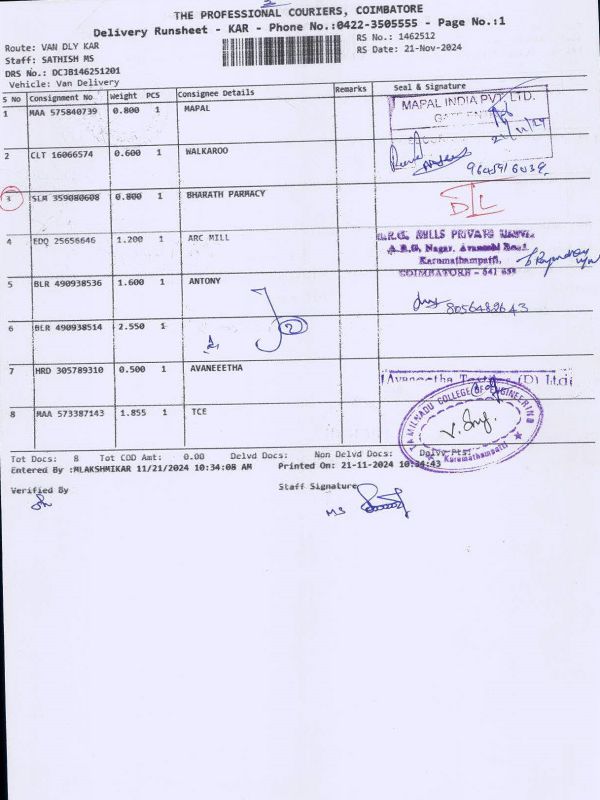 THE PROFESSIONAL COURIERS, COIMBATORE
Delivery Runsheet - KAR - Phone No.:0422-3505555 - Page No.:1
Route: VAN DLY KAR
RS No.: 1462512
Staff: SATHISH MS
RS Date: 21-Nov-2024
DRS No.: DCJB146251201
Vehicle: Van Delivery
S No Consignment No Weight PCS Consignee Details Remarks Seal & Signature
1 MAA 575840739 0.800 1 MAPAL
MAPAL INDIA PVT. LTD.
2 CLT 16066574 0.600 1 WALKAROO
3 SLM 359080608 0.800 1 BHARATH PARMACY
4 EDQ 25656646 1.200 1 ARC MILL
A.R.G. Nagar,
Karumathampatti,
COIMBATORE - 641 659
5 BLR 490938536 1.600 1 ANTONY
8056482643
6 BLR 490938514 2.550 1
2
7 HRD 305789310 0.500 1 AVANEEETHA
8 MAA 573387143 1.855 1 TCE
TAMILNADU COLLEGE OF ENGINEERING
Karumathampatti
Tot Docs: 8 Tot COD Amt: 0.00 Delvd Docs: Non Delvd Docs: Delvy Pts:
Entered By :MLAKSHMIKAR 11/21/2024 10:34:08 AM Printed On: 21-11-2024 10:34:43
Verified By
Staff Signature
MS